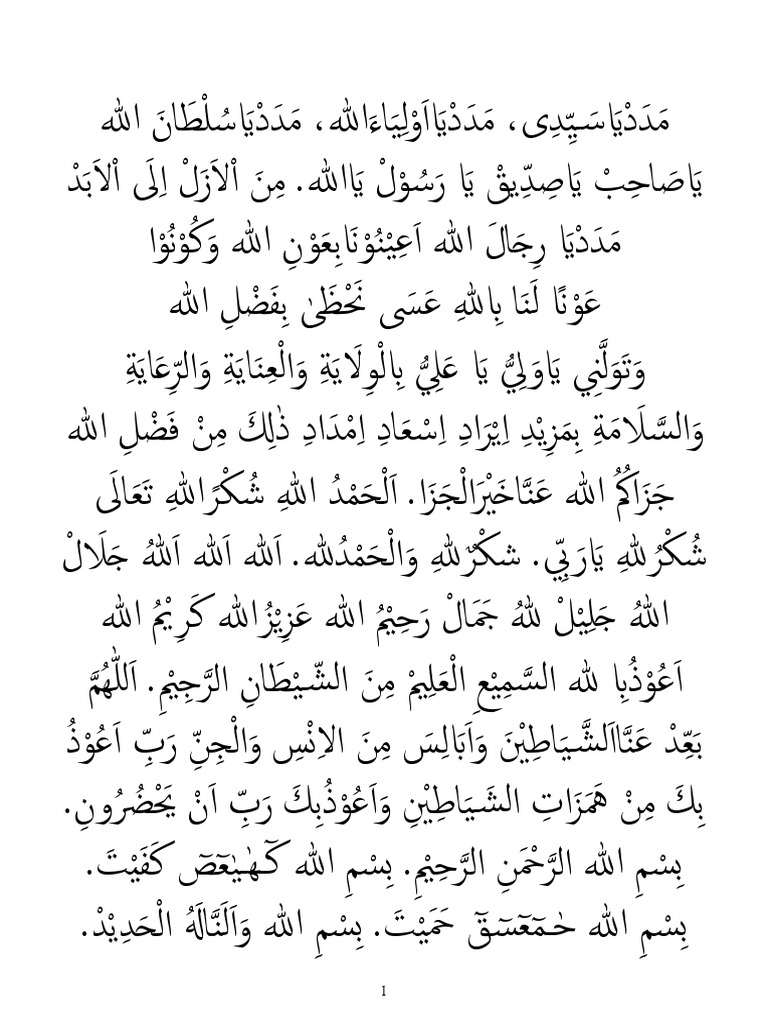 مَدَدْيَاسَيِّدِى، مَدَدْيَااَوْلِيَاءَالله، مَدَدْيَاسُلْطَانَ الله
يَاصَاحِبْ يَاصِدِّيقْ يَا رَسُوْلْ يَاالله. مِنَ اْلاَزَلْ اِلَى اْلاَبَدْ
مَدَدْيَا رِجَالَ الله اَعِيْنُوْنَابِعَوْنِ الله وَكُوْنُوْا
عَوْنًا لَنَا بِاللهِ عَسَى نَحْظَىٰ بِفَضْلِ الله
وَتَوَلَّنِي يَاوَلِيُّ يَا عَلِيُّ بِالْوِلَايَةِ وَالْعِنَايَةِ وَالرِّعَايَةِ
وَالسَّلَامَةِ بِمَزِيْدِ اِيْرَادِ اِسْعَادِ اِمْدَادِ ذٰلِكَ مِنْ فَضْلِ الله
جَزَاكُمُ الله عَنَّاخَيْرَالْجَزَا. اَلْحَمْدُ اللهِ شُكْرًاللهِ تَعَالَى
شُكْرُللهِ يَارَبِّي. شكْرٌللهِ وَالْحَمْدُلله. اَلله اَلله اَللهُ جَلَالْ
اللهُ جَلِيْلْ للهُ جَمَالْ رَحِيْمُ الله عَزِيْزُالله كَرِيْمُ الله
اَعُوْذُبِا لله السَّمِيْعِ الْعَلِيمْ مِنَ الشَّيْطَانِ الرَّجِيْمِ. اَللّٰهُمَّ
بَعِّدْ عَنَّااَلشَّيَاطِيْنَ وَاَبَالِسَ مِنَ الاِنْسِ وَالْجِنِّ رَبِّ اَعُوْذُ
بِكَ مِنْ هَمَزَاتِ الشَيَاطِيْنِ وَاَعُوْذُبِكَ رَبِّ اَنْ يَحْضُرُونِ.
بِسْمِ الله الرَّحْمَنِ الرَّحِيْمِ. بِسْمِ الله كٓهٰيٰعٓصٓ كَفَيْتَ.
بِسْمِ الله حٰمٓعٓسٓقٓ حَمَيْتَ. بِسْمِ الله وَاَلَنَّالَهُ الْحَدِيْدْ.
1